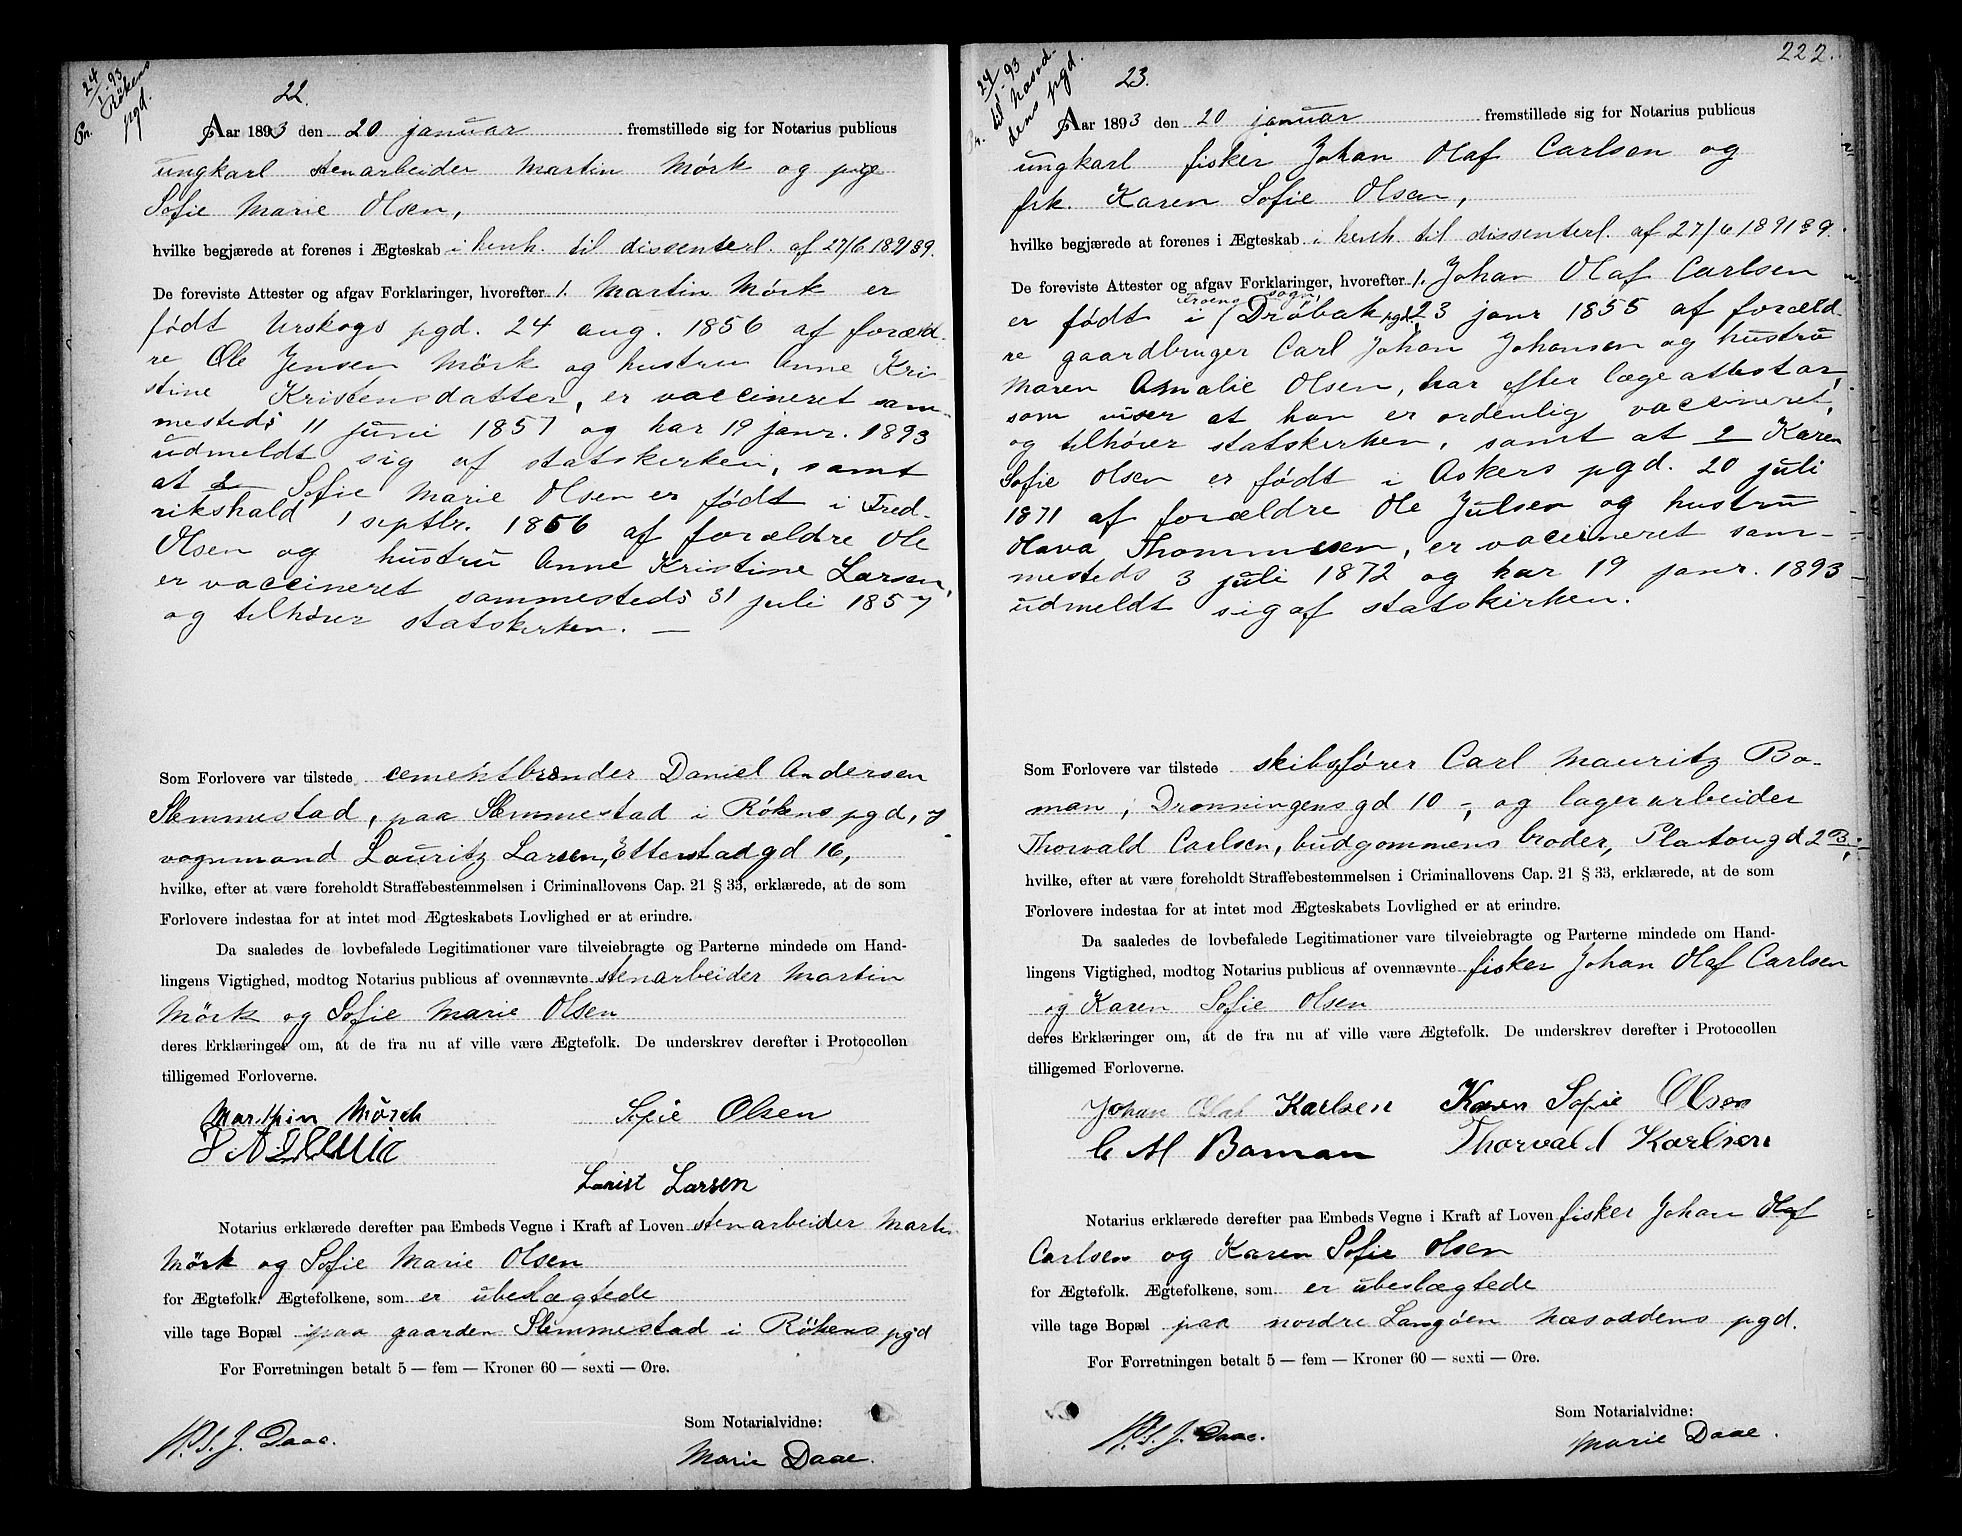 24/1-93
Rökens
pgd.
22.
Aar 1893 den 20 januar fremstillede sig for Notarius publicus
ungkarl stenarbeider Martin Mörk og pige
Sofie Marie Olsen,
hvilke begjærede at forenes i Ægteskab i henh. til dissenterl. af 27/6 1891 § 9.
De foreviste Attester og afgav Forklaringer, hvorefter 1. Martin Mörk er
født Urskogs pgd. 24 aug. 1856 af foræld-
re Ole Jensen Mörk og hustru Anne Kri-
stine Kristensdatter, er vaccineret sam-
mesteds 11 juni 1857 og har 19 janr. 1893
udmeldt sig af statskirken, samt
at 2 Sofie Marie Olsen er født i Fred-
rikshald 1 septbr. 1856 af forældre Ole
Olsen og hustru Anne Kristine Larsen,
er vaccineret sammesteds 31 juli 1857
og tilhører statskirken. —
Som Forlovere var tilstede cementbrænder Daniel Andersen
Slemmestad, paa Slemmestad i Rökens pgd, og
vognmand Lauritz Larsen, Etterstadgd 16,
hvilke, efter at være foreholdt Straffebestemmelsen i Criminallovens Cap. 21 § 33, erklærede, at de som
Forlovere indestaa for at intet mod Ægteskabets Lovlighed er at erindre.
Da saaledes de lovbefalede Legitimationer vare tilveiebragte og Parterne mindede om Hand-
lingens Vigtighed, modtog Notarius publicus af ovennævnte stenarbeider Martin
Mörk og Sofie Marie Olsen
deres Erklæringer om, at de fra nu af ville være Ægtefolk. De underskrev derefter i Protocollen
tilligemed Forloverne.
Marthin Mörch Sofie Olsen
Larsen
Notarius erklærede derefter paa Embeds Vegne i Kraft af Loven stenarbeider Martin
Mörk og Sofie Marie Olsen
for Ægtefolk. Ægtefolkene, som er ubeslægtede
ville tage Bopæl paa gaarden Slemmestad i Rökens pgd
For Forretningen betalt 5 — fem — Kroner 60 — sexti — Øre.
Som Notarialvidne:
J. Daae.
Marie Daae.
222.
24/1-93
til Næsod-
dens pgd.
23.
Aar 1893 den 20 januar fremstillede sig for Notarius publicus
ungkarl fisker Johan Olaf Carlsen og
frk. Karen Sofie Olsen,
hvilke begjærede at forenes i Ægteskab i henh. til dissenterl. af 27/6 1891 § 9.
De foreviste Attester og afgav Forklaringer, hvorefter 1. Johan Olaf Carlsen
sogn,
er født i Dröbak pgd. 23 janr 1855 af foræld-
re gaardbruger Carl Johan Johansen og hustru
Maren Amalie Olsen, har efter lægeattester,
som viser at han er ordenlig vaccineret,
og tilhører statskirken, samt at 2 Karen
Sofie Olsen er født i Askers pgd. 20 juli
1871 af forældre Ole Julsen og hustru
Olava Thommesen, er vaccineret sam-
mesteds 3 juli 1872 og har 19 janr. 1893
udmeldt sig af statskirken.
Som Forlovere var tilstede skibsfører Carl Mauritz Bo-
man, Dronningensgd 10 -, og lagerarbeider
Thorvald Carlsen, budgommens broder, Platougd 2B,
hvilke, efter at være foreholdt Straffebestemmelsen i Criminallovens Cap. 21 § 33, erklærede, at de som
Forlovere indestaa for at intet mod Ægteskabets Lovlighed er at erindre.
Da saaledes de lovbefalede Legitimationer vare tilveiebragte og Parterne mindede om Hand-
lingens Vigtighed, modtog Notarius publicus af ovennævnte fisker Johan Olaf Carlsen
og Karen Sofie Olsen
deres Erklæringer om, at de fra nu af ville være Ægtefolk. De underskrev derefter i Protocollen
tilligemed Forloverne.
Johan Olaf Karlsen Karen Sofie Olsen
C M Boman Thorvald Karlsen
Notarius erklærede derefter paa Embeds Vegne i Kraft af Loven fisker Johan Olaf
Carlsen og Karen Sofie Olsen
for Ægtefolk. Ægtefolkene, som er ubeslægtede
ville tage Bopæl paa nordre Langöen Næsoddens pgd.
For Forretningen betalt 5 — fem — Kroner 60 — sexti — Øre.
Som Notarialvidne:
J. Daae.
Marie Daae.